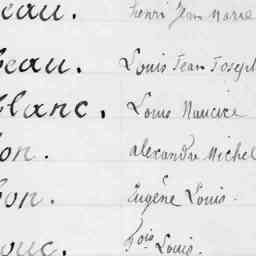 eau. henri Jean Marie
beau. Louis Jean Joseph
blanc. Louis Maurice
bon. alexandre Michel
bon. Eugène Louis.
ouc. fois Louis.